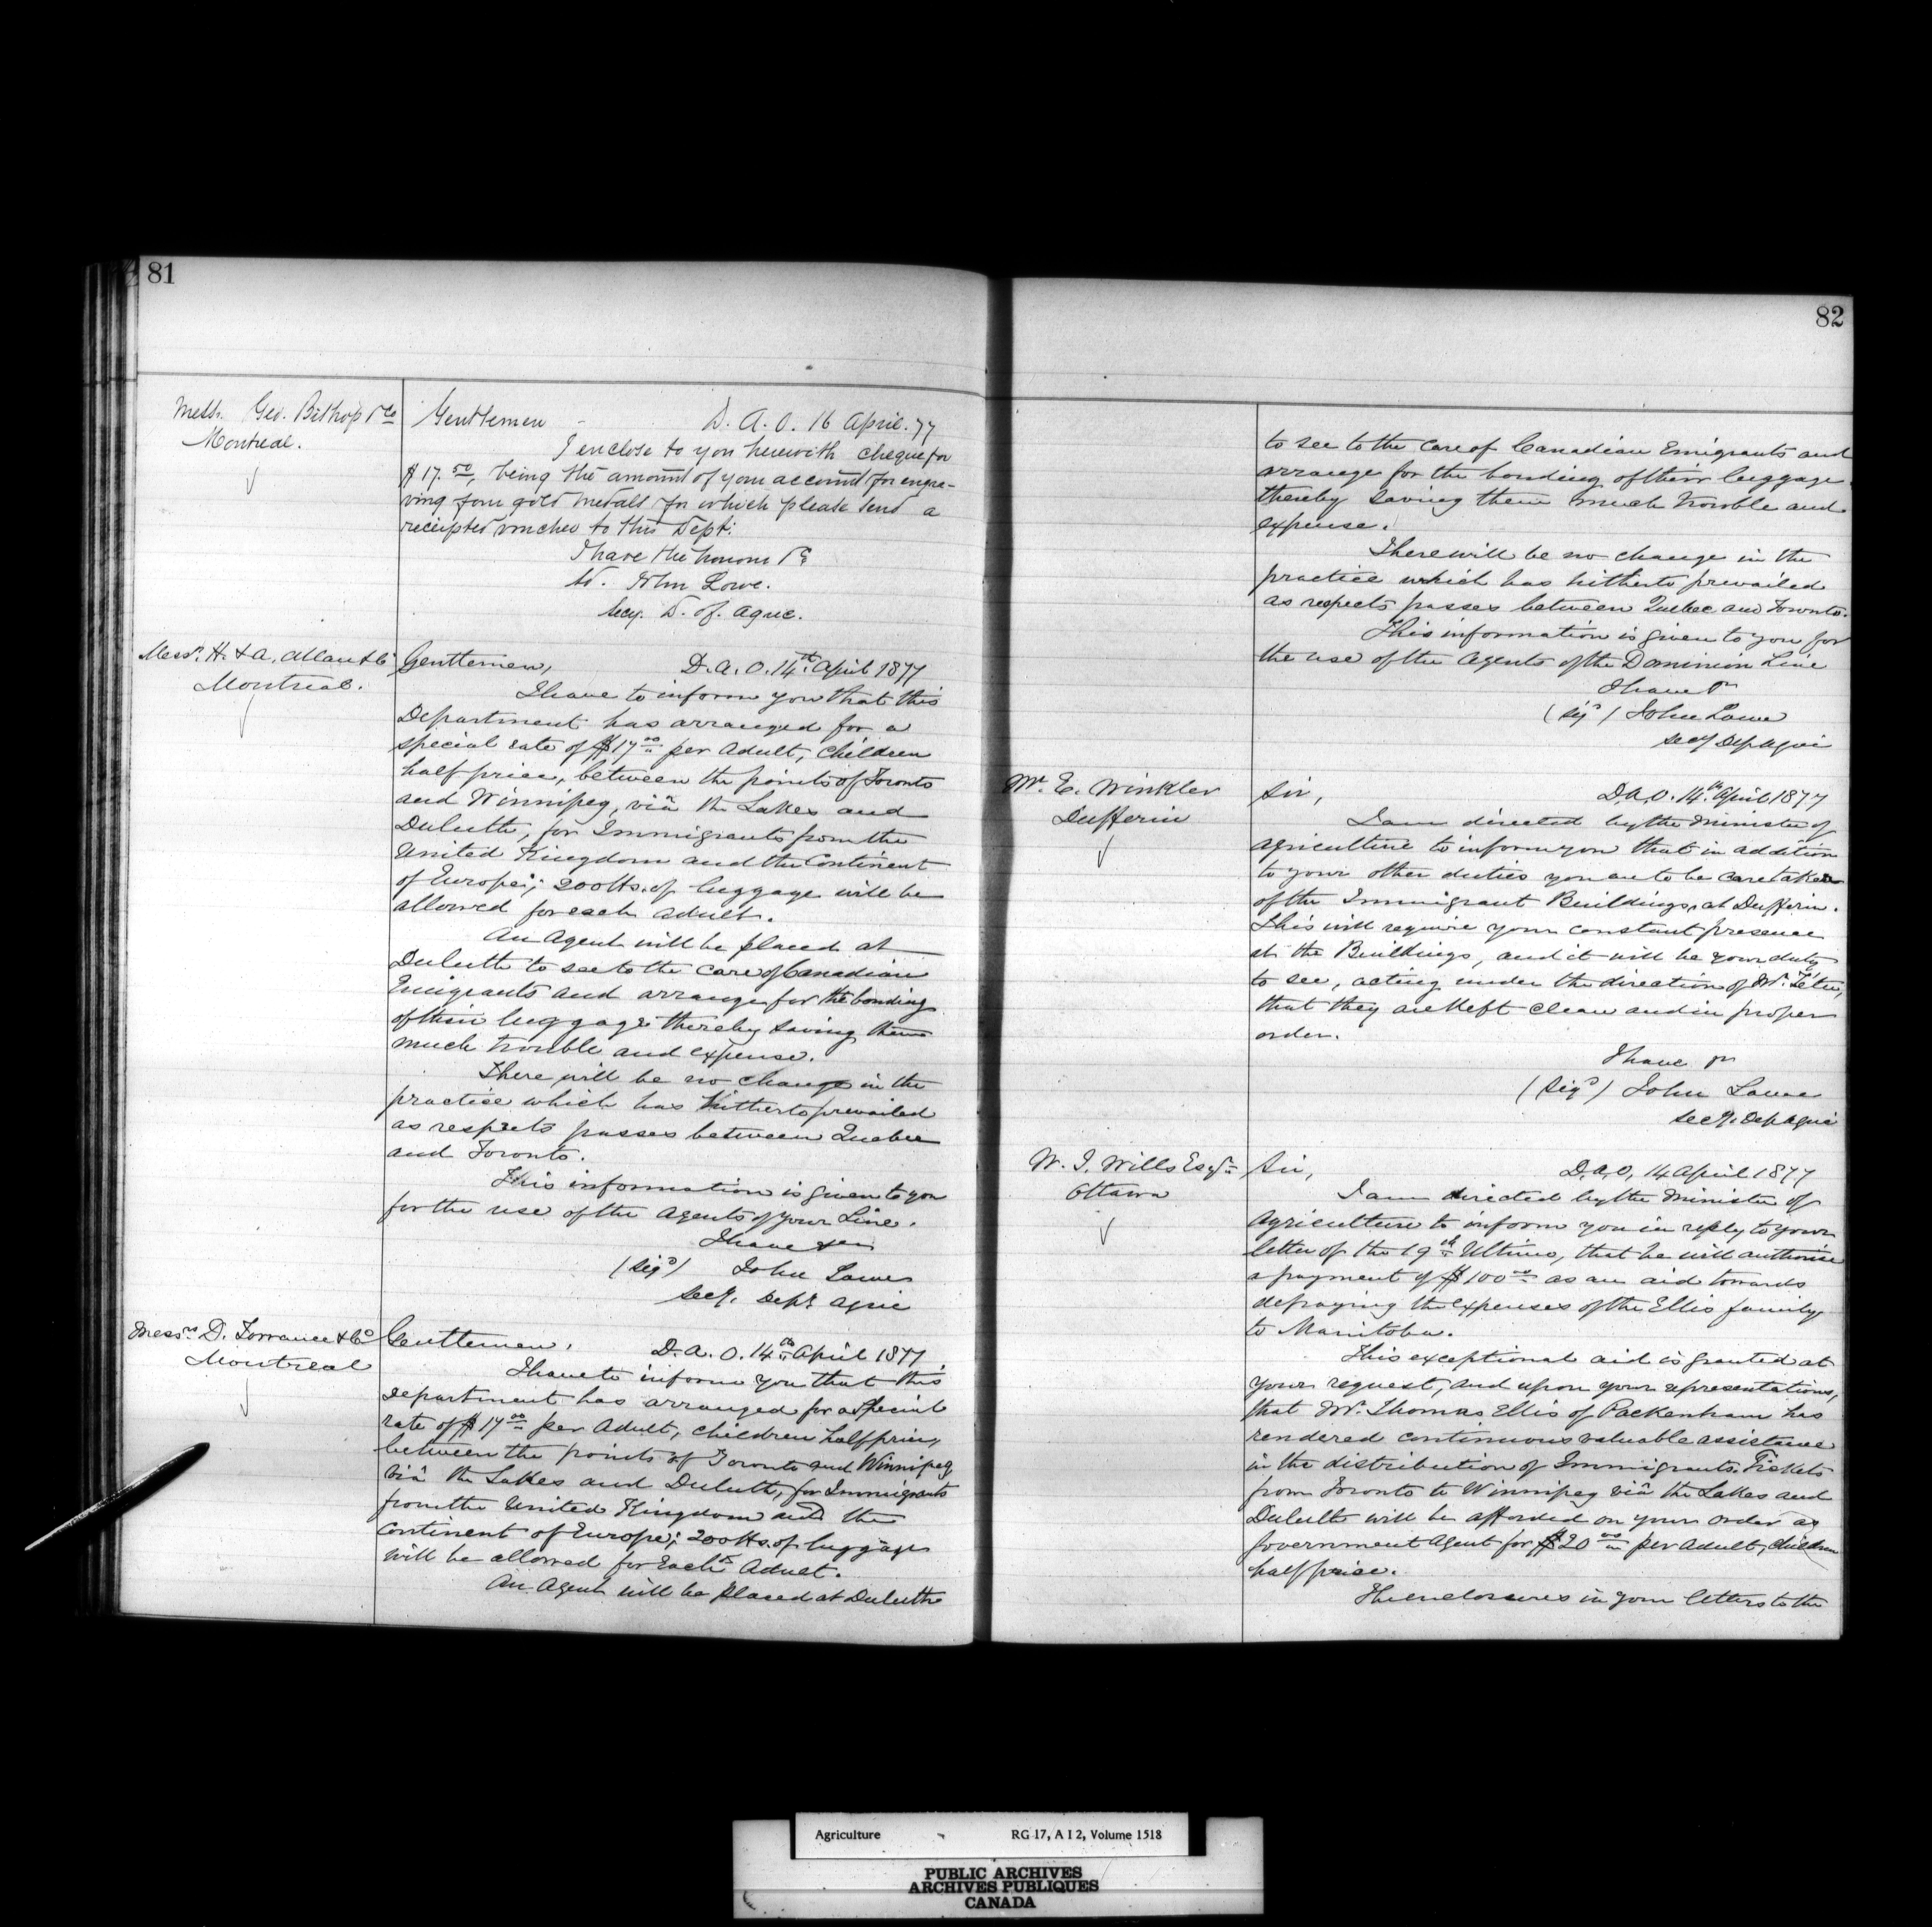 81
Messrs. Geo. Bishop & Co
Montreal.
Gentlemen - D. A. O. 16 April. 77
I enclose to you herewith cheque for
$17.50, being the amount of your account for engra-
ving four gold medals for which please send a
receipted voucher to this Dept:
I have the honour &c
Sd. John Lowe.
Secy. D. of. Agric.
Messrs. H. & A. Allan & Co
Montreal.
Gentlemen, D. A. O. 14th April 1877
I have to inform you that this
Department has arranged for a
special rate of $17.00 per Adult, children
half price, between the points of Toronto
and Winnipeg, viâ the Lakes and
Duluth, for Immigrants from the
United Kingdom and the Continent
of Europe; 200 lbs. of luggage will be
allowed for each adult.
An Agent will be placed at
Duluth to see to the care of Canadian
Emigrants and arrange for the bonding
of their luggage thereby saving them
much trouble and expense.
There will be no change in the
practice which has hitherto prevailed
as respects passes between Quebec
and Toronto.
This information is given to you
for the use of the Agents of your Line.
I have &c
(Sigd) John Lowe
Secy. Dept Agric
Messrs D. Torrance & Co
Montreal
Gentlemen, D. A. O. 14th April 1877,
I have to inform you that this
Department has arranged for a special
rate of $17.00 per Adult, children half price,
between the points of Toronto and Winnipeg
viâ the Lakes and Duluth, for Immigrants
from the United Kingdom and the
Continent of Europe; 200 lbs. of luggage
will be allowed for Each Adult.
An Agent will be placed at Duluth
82
to see to the care of Canadian Emigrants and
arrange for the bonding of their luggage
thereby saving them much trouble and
expense.
There will be no change in the
practice which has hitherto prevailed
as respects passes between Quebec and Toronto.
This information is given to you for
the use of the Agents of the Dominion Line
I have &c
(Sigd) John Lowe
Secy Dep Agric
Mr. E. Winkler
Dufferin
Sir, D. A. O. 14th April 1877
I am directed by the Minister of
Agriculture to inform you that in addition
to your other duties you are to be caretaker
of the Immigrant Buildings, at Dufferin.
This will require your constant presence
at the Buildings, and it will be your duty
to see, acting under the direction of Mr. Têtu,
that they are kept clean and in proper
order.
I have &c
(Sigd) John Lowe
Secy. Dep Agric
W. J. Wills Esqr
Ottawa
Sir, D. A. O, 14 April 1877
I am directed by the Minister of
Agriculture to inform you in reply to your
letter of the 19th Ultimo, that he will authorise
a payment of $100.00 as an aid towards
defraying the expenses of the Ellis family
to Manitoba.
This exceptional aid is granted at
your request, and upon your representations,
that Mr. Thomas Ellis of Packenham has
rendered continuous valuable assistance
in the distribution of Immigrants. Tickets
from Toronto to Winnipeg viâ the Lakes and
Duluth will be afforded on your order as
Government Agent for $20.00 per Adult, children
half price.
The enclosures in your letters to the
Agriculture RG 17, A I 2, Volume 1518
PUBLIC ARCHIVES
ARCHIVES PUBLIQUES
CANADA